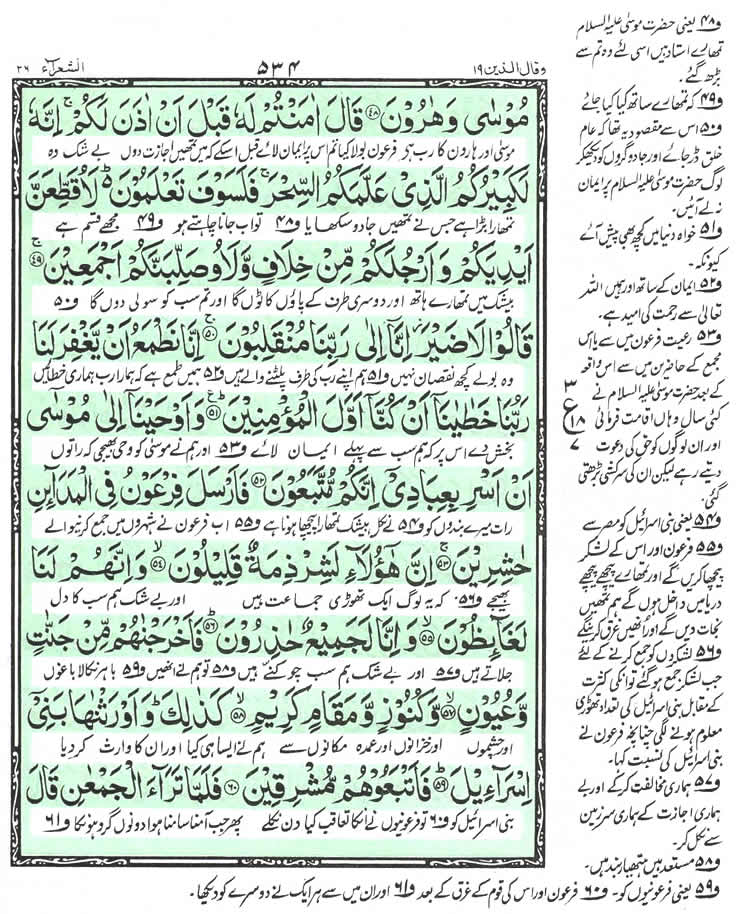 وقال الذین ۱۹
۵۳۴
الشعرآء ۲۶
مُوْسٰى وَهٰرُوْنَ ﴿۴۸﴾ قَالَ اٰمَنْتُمْ لَهٗ قَبْلَ اَنْ اٰذَنَ لَكُمْ ۚ اِنَّهٗ
موسیٰ اور ہارون کا رب ہے فرعون بولا کیا تم اس پر ایمان لائے قبل اسکے کہ میں تمھیں اجازت دوں بے شک وہ
لَكَبِیْرُكُمُ الَّذِیْ عَلَّمَكُمُ السِّحْرَ ۚ فَلَسَوْفَ تَعْلَمُوْنَ ؕ۬ لَاُقَطِّعَنَّ
تمھارا بڑا ہے جس نے تمھیں جادو سکھایا و۴۸ تو اب جانا چاہتے ہو و۴۹ مجھے قسم ہے
اَیْدِیَكُمْ وَاَرْجُلَكُمْ مِّنْ خِلَافٍ وَّلَاُوصَلِّبَنَّكُمْ اَجْمَعِیْنَ ﴿۴۹﴾ۚ
بیشک میں تمھارے ہاتھ اور دوسری طرف کے پاؤں کاٹوں گا اور تم سب کو سولی دوں گا و۵۰
قَالُوْا لَا ضَیْرَ ؗ اِنَّاۤ اِلٰى رَبِّنَا مُنْقَلِبُوْنَ ﴿۵۰﴾ۚ اِنَّا نَطْمَعُ اَنْ یَّغْفِرَ لَنَا
وہ بولے کچھ نقصان نہیں و۵۱ ہم اپنے رب کی طرف پلٹنے والے ہیں و۵۲ ہمیں طمع ہے کہ ہمارا رب ہماری خطائیں
رَبُّنَا خَطٰیٰنَاۤ اَنْ كُنَّاۤ اَوَّلَ الْمُؤْمِنِیْنَ ﴿۵۱﴾ؕ وَاَوْحَیْنَاۤ اِلٰى مُوْسٰۤى
بخش دے اس پر کہ ہم سب سے پہلے ایمان لائے و۵۳ اور ہم نے موسیٰ کو وحی بھیجی کہ راتوں
اَنْ اَسْرِ بِعِبَادِیْۤ اِنَّكُمْ مُّتَّبَعُوْنَ ﴿۵۲﴾ فَاَرْسَلَ فِرْعَوْنُ فِی الْمَدَآىِٕنِ
رات میرے بندوں کو و۵۴ لے نکل بیشک تمھارا پیچھا ہونا ہے و۵۵ اب فرعون نے شہروں میں جمع کرنیوالے
حٰشِرِیْنَ ﴿۵۳﴾ۚ اِنَّ هٰۤؤُلَآءِ لَشِرْذِمَةٌ قَلِیْلُوْنَ ﴿۵۴﴾ۙ وَاِنَّهُمْ لَنَا
بھیجے و۵۶ کہ یہ لوگ ایک تھوڑی جماعت ہیں اور بے شک ہم سب کا دل
لَغَآىِٕظُوْنَ ﴿۵۵﴾ۙ وَاِنَّا لَجَمِیْعٌ حٰذِرُوْنَ ﴿۵۶﴾ؕ فَاَخْرَجْنٰهُمْ مِّنْ جَنّٰتٍ
جلاتے ہیں و۵۷ اور بے شک ہم سب چوکنے ہیں و۵۸ تو ہم نے انھیں و۵۹ باہر نکالا باغوں
وَّعُیُوْنٍ ﴿۵۷﴾ۙ وَّكُنُوْزٍ وَّمَقَامٍ كَرِیْمٍ ﴿۵۸﴾ۙ كَذٰلِكَ ؕ وَاَوْرَثْنٰهَا بَنِیْۤ
اور چشموں اور خزانوں اور عمدہ مکانوں سے ہم نے ایسا ہی کیا اور ان کا وارث کر دیا
اِسْرَآءِیْلَ ﴿۵۹﴾ؕ فَاَتْبَعُوْهُمْ مُّشْرِقِیْنَ ﴿۶۰﴾ فَلَمَّا تَرَآءَ الْجَمْعٰنِ قَالَ
بنی اسرائیل کو و۶۰ تو فرعونیوں نے انکا تعاقب کیا دن نکلے پھر جب آمنا سامنا ہوا دونوں گروہوں کا و۶۱
و۴۸ یعنی حضرت موسیٰ علیہ السلام
تمھارے استاد ہیں اسی لئے وہ تم سے
بڑھ گئے۔
و۴۹ کہ تمھارے ساتھ کیا کیا جائے
و۵۰ اس سے مقصود یہ تھا کہ عام
خلق ڈر جائے اور جادوگروں کو دیکھکر
لوگ حضرت موسیٰ علیہ السلام پر ایمان
نہ لے آئیں۔
و۵۱ خواہ دنیا میں کچھ بھی پیش آئے
کیونکہ۔
و۵۲ ایمان کے ساتھ اور ہمیں اللہ
تعالیٰ سے رحمت کی امید ہے۔
و۵۳ رعیت فرعون میں سے یا اس
مجمع کے حاضرین میں سے اس واقعہ
کے بعد حضرت موسیٰ علیہ السلام نے
کئی سال وہاں اقامت فرمائی
اور ان لوگوں کو حق کی دعوت
دیتے رہے لیکن ان کی سرکشی بڑھتی
گئی۔
۳
ع
۱۸
۷
و۵۴ یعنی بنی اسرائیل کو مصر سے
و۵۵ فرعون اور اس کے لشکر
پیچھا کریں گے اور تمھارے پیچھے پیچھے
دریا میں داخل ہوں گے ہم تمھیں
نجات دیں گے اور انھیں غرق کرینگے
و۵۶ لشکروں کو جمع کرنے کے لئے
جب لشکر جمع ہو گئے تو انکی کثرت
کے مقابل بنی اسرائیل کی تعداد تھوڑی
معلوم ہونے لگی چنانچہ فرعون نے
بنی اسرائیل کی نسبت کہا۔
و۵۷ ہماری مخالفت کرکے اور بے
ہماری اجازت کے ہماری سرزمین
سے نکل کر۔
و۵۸ مستعد ہیں ہتھیار بند ہیں۔
و۵۹ یعنی فرعونیوں کو۔ و۶۰ فرعون اور اس کی قوم کے غرق کے بعد و۶۱ اور ان میں سے ہر ایک نے دوسرے کو دیکھا۔